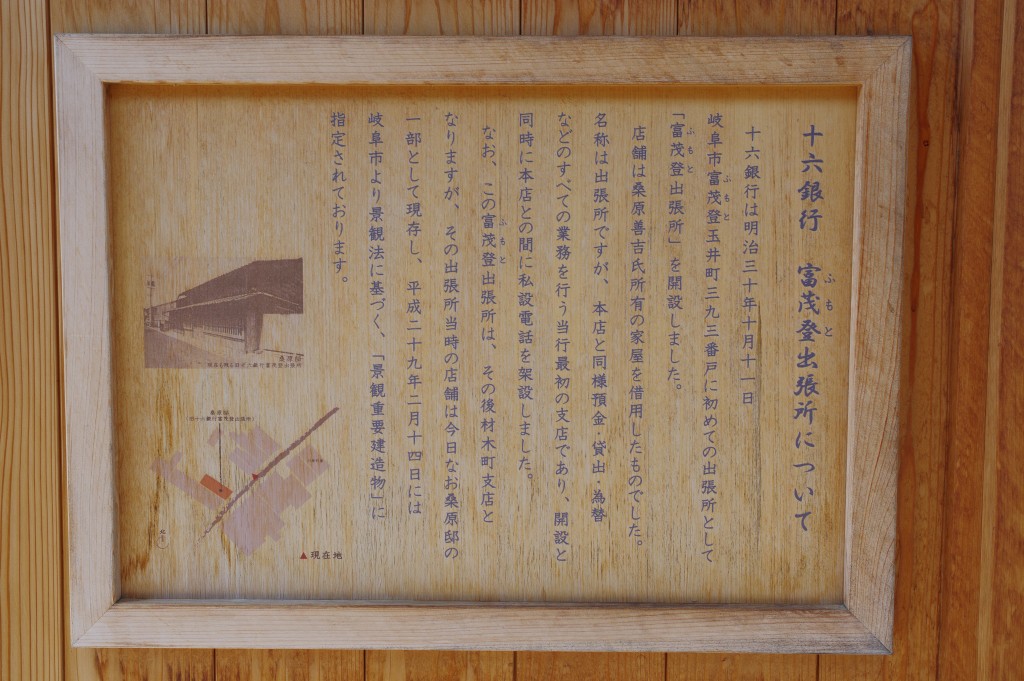 十六銀行 富茂登出張所について
ふもと
十六銀行は明治三十年十月十一日
岐阜市富茂登玉井町三九三番戸に初めての出張所として
ふもと
「富茂登出張所」を開設しました。
ふもと
店舗は桑原善吉氏所有の家屋を借用したものでした。
名称は出張所ですが、本店と同様預金・貸出・為替
などのすべての業務を行う当行最初の支店であり、開設と
同時に本店との間に私設電話を架設しました。
なお、この富茂登出張所は、その後材木町支店と
ふもと
なりますが、その出張所当時の店舗は今日なお桑原邸の
一部として現存し、平成二十九年二月十四日には
岐阜市より景観法に基づく、「景観重要建造物」に
指定されております。
桑原邸
桑原邸
▲現在地